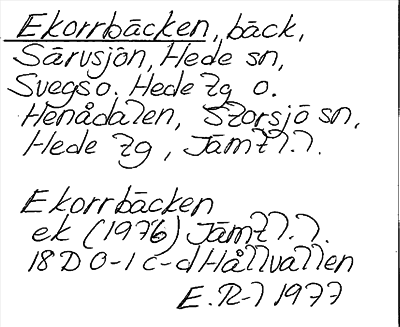 Ekorrbäcken, bäck,
Särvsjön, Hede sn,
Svegs o. Hede Zg o.
Henådalen, Storsjö sn,
Hede Zg, Jämtl.l.
Ekorrbäcken
ek (1976) Jämtl.l.
18D 0-1 c-d Hållvallen
E.R-l 1977